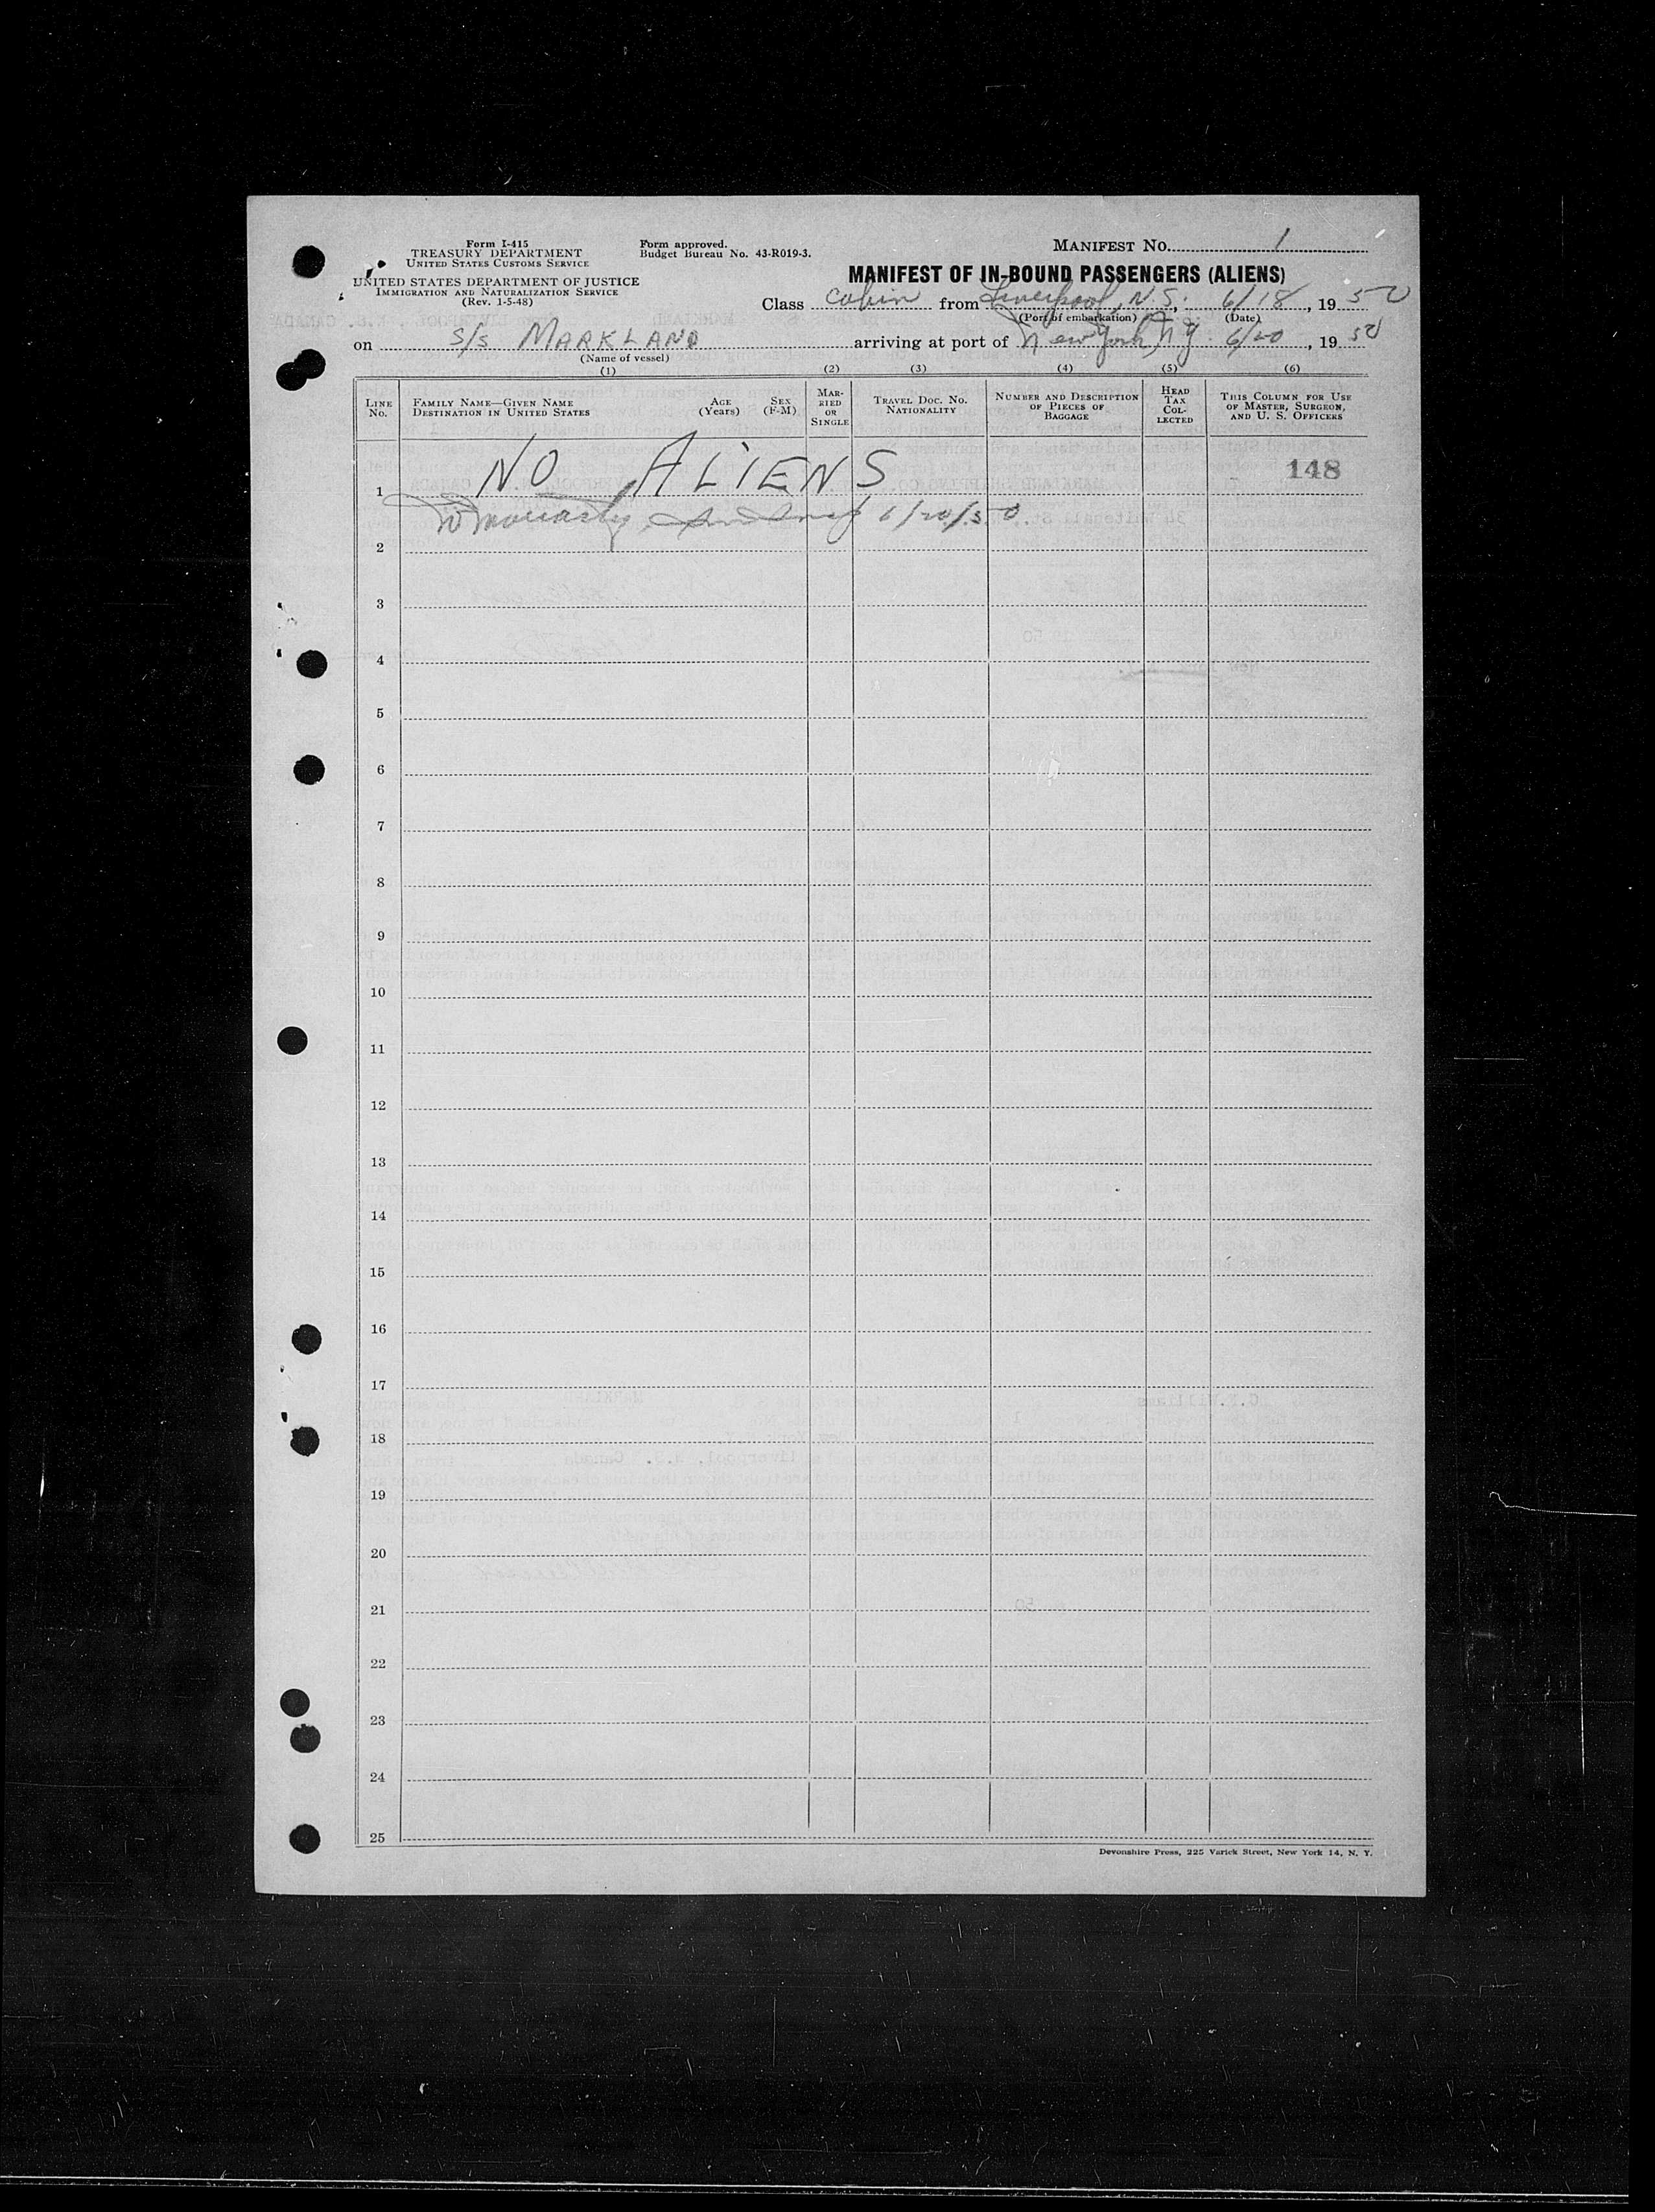 Form I-415
TREASURY DEPARTMENT
UNITED STATES CUSTOMS SERVICE
UNITED STATES DEPARTMENT OF JUSTICE
IMMIGRATION AND NATURALIZATION SERVICE
(Rev. 1-5-48)
Form approved.
Budget Bureau No. 43-R019-3.
MANIFEST No. 1
MANIFEST OF IN-BOUND PASSENGERS (ALIENS)
Class Cabin from Liverpool, N.S., 6/18, 19 50
(Port of embarkation) (Date)
on S/S MARKLAND arriving at port of New York, N.Y. 6/20, 19 50
(Name of vessel)
(1) (2) (3) (4) (5) (6)
LINE No.
FAMILY NAME—GIVEN NAME
DESTINATION IN UNITED STATES
AGE (Years)
SEX (F-M)
MARRIED OR SINGLE
TRAVEL DOC. No.
NATIONALITY
NUMBER AND DESCRIPTION OF PIECES OF BAGGAGE
HEAD TAX COLLECTED
THIS COLUMN FOR USE OF MASTER, SURGEON, AND U. S. OFFICERS
1 NO ALIENS 148
6/20/50
2
3
4
5
6
7
8
9
10
11
12
13
14
15
16
17
18
19
20
21
22
23
24
25
Devonshire Press, 225 Varick Street, New York 14, N. Y.